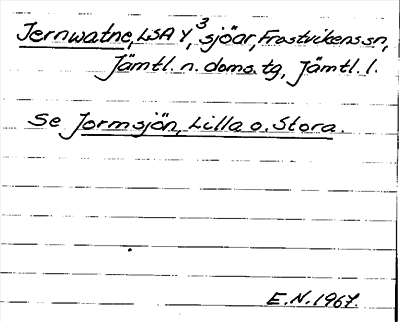 Jernwatne, LSA Y, 3 sjöar, Frostvikens sn,
Jämtl. n. doms. tg, Jämtl. l.
Se Jormsjön, Lilla o. Stora.
E.N. 1967.